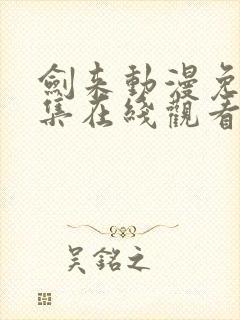 劍來動漫免
集在綫觀看
吴銘之